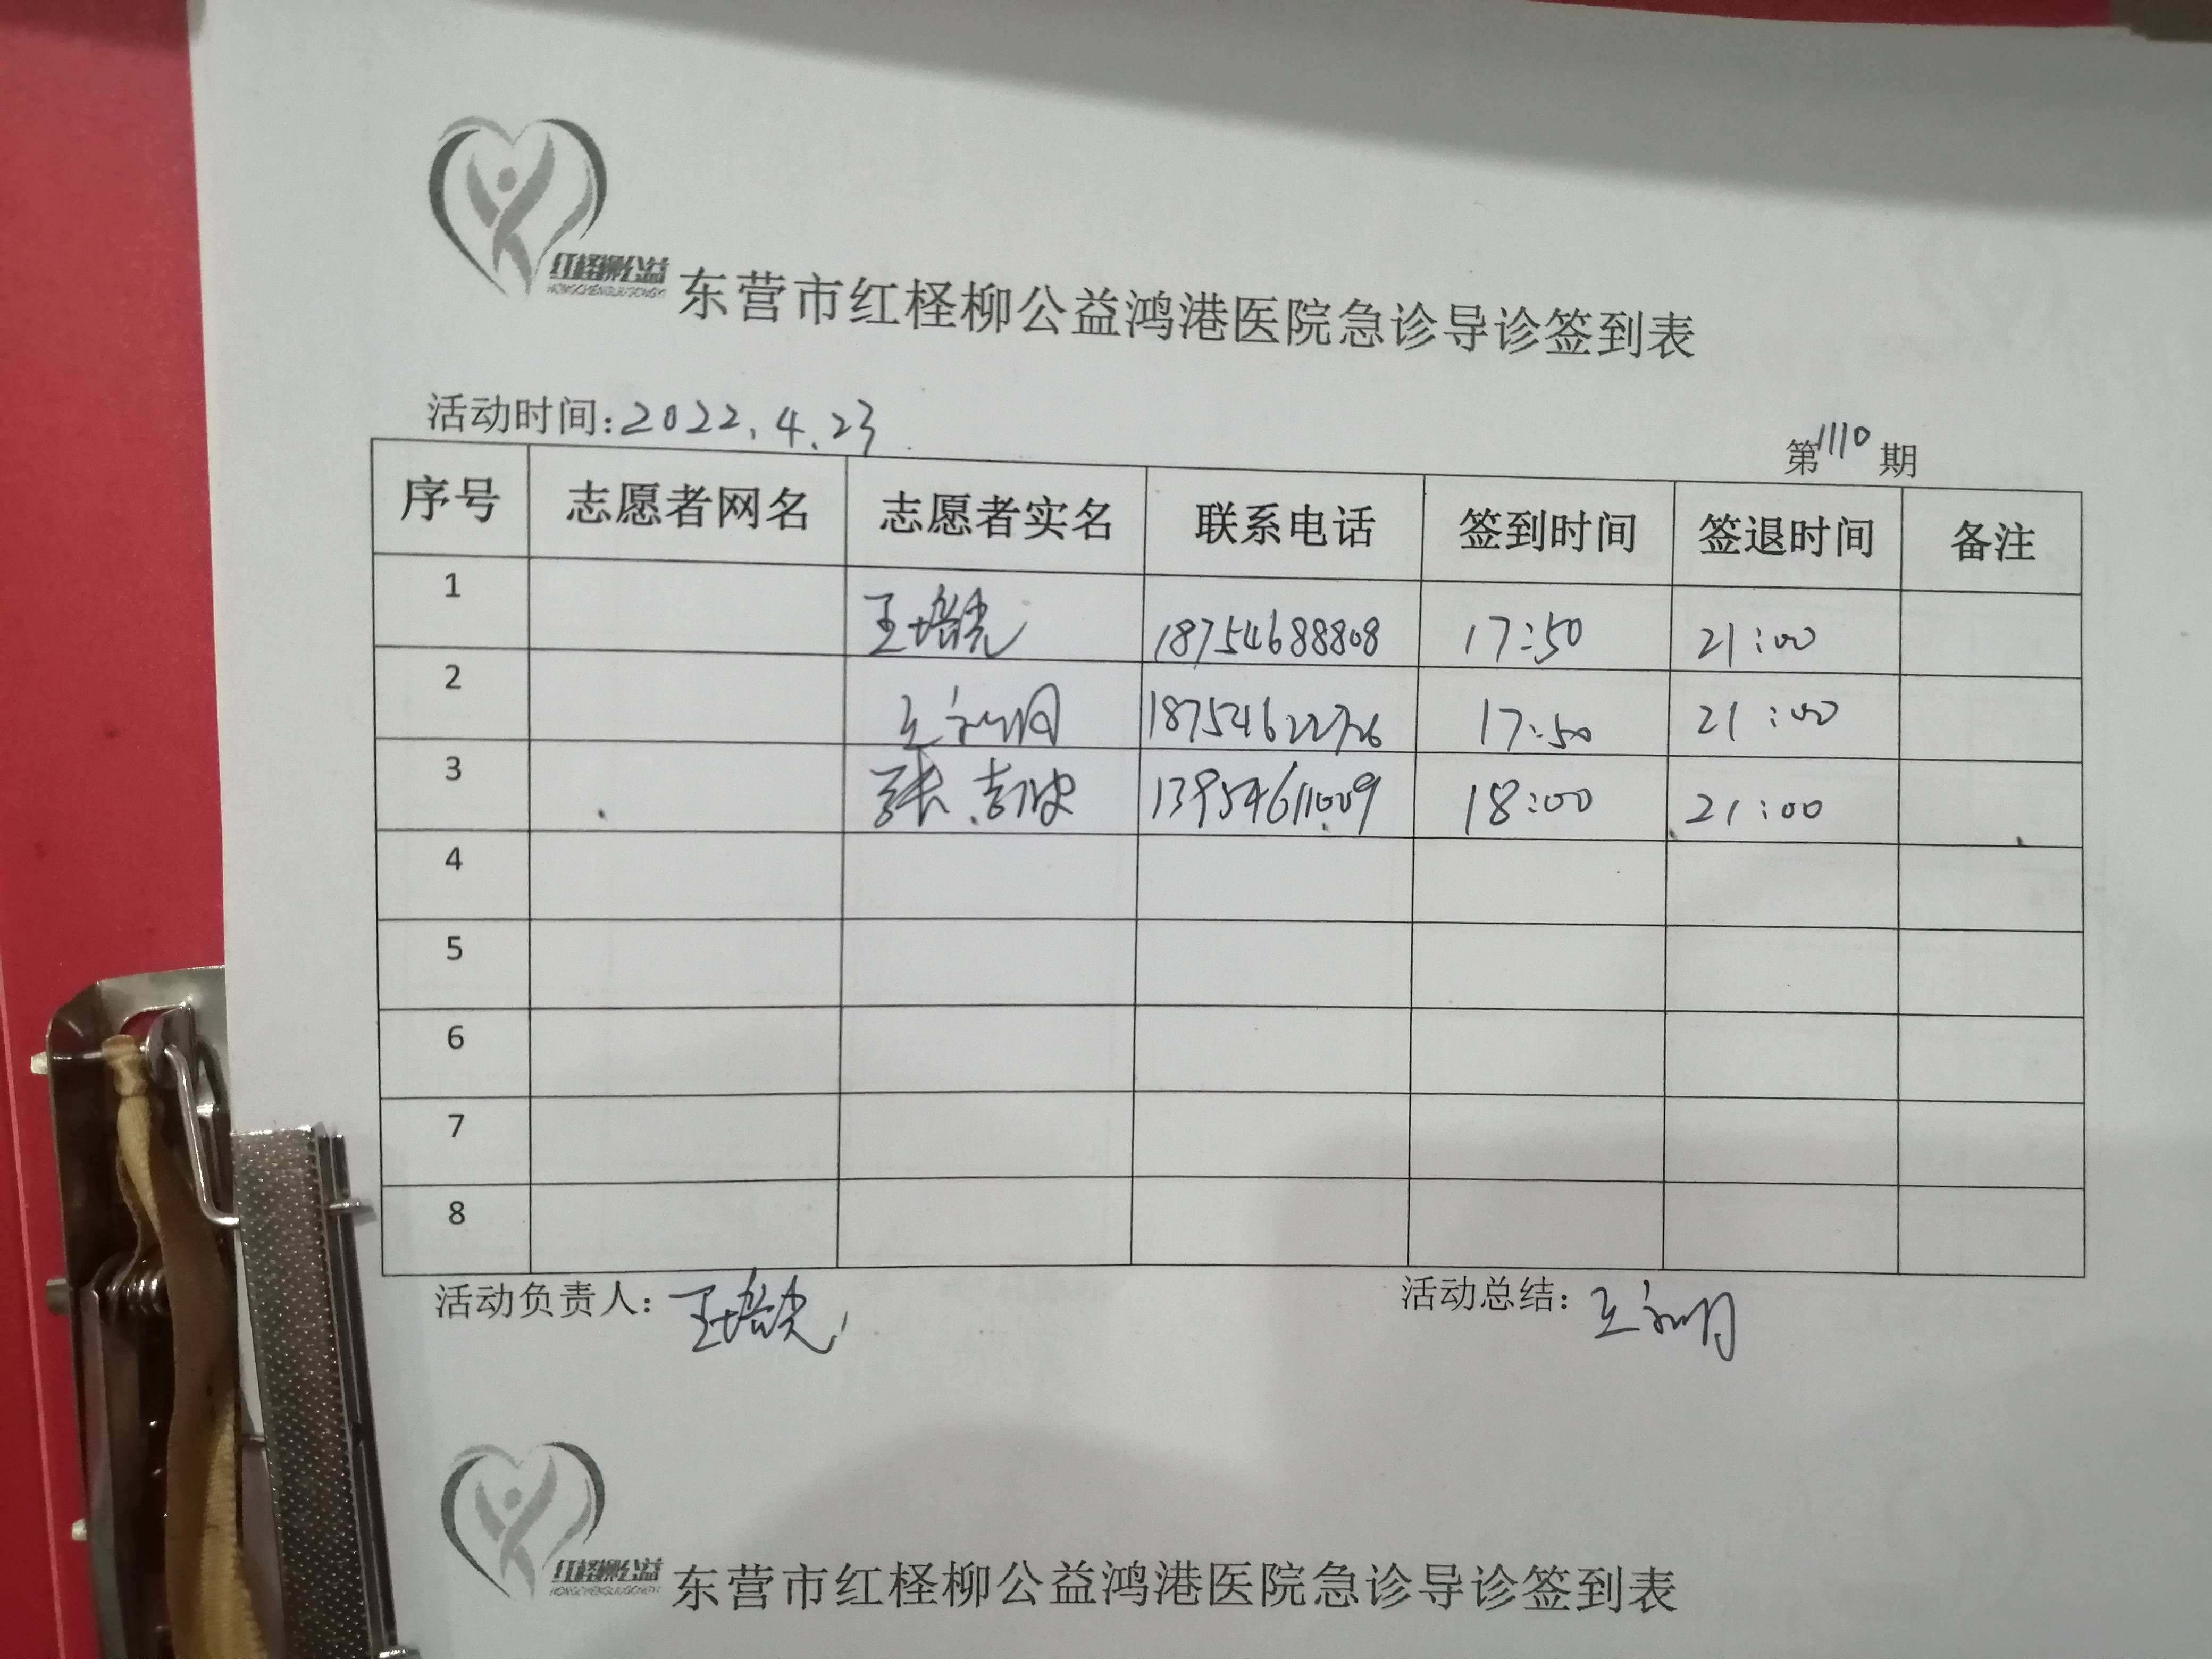 红柽柳公益
HONGCHENGLIUGONGYI
东营市红柽柳公益鸿港医院急诊导诊签到表
活动时间:2022.4.23
第1110期
序号 志愿者网名 志愿者实名 联系电话 签到时间 签退时间 备注
1 王培亮 18754688808 17:50 21:00
2 王 187546 17:50 21:00
3 张吉波 13954611009 18:00 21:00
4
5
6
7
8
活动负责人: 王培亮 活动总结: 王
红柽柳公益
HONGCHENGLIUGONGYI
东营市红柽柳公益鸿港医院急诊导诊签到表